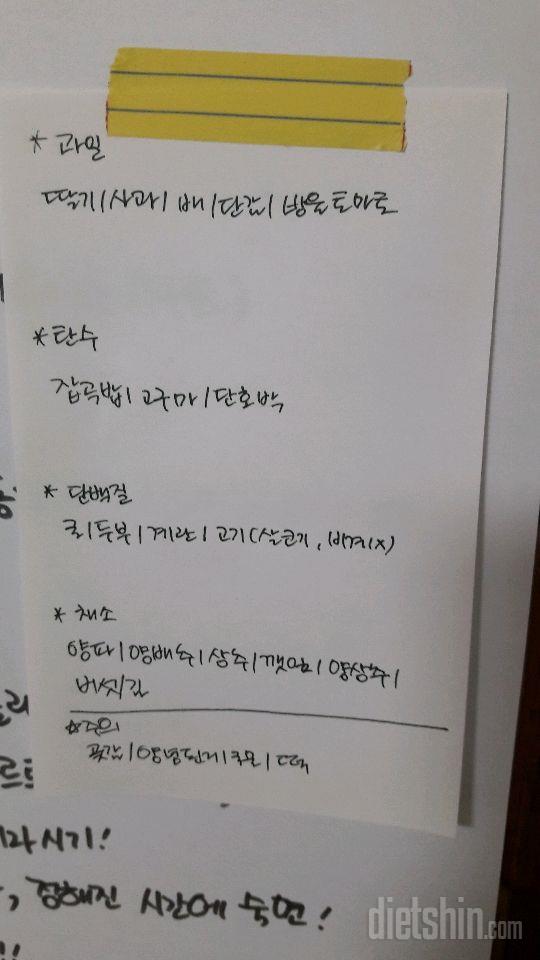 * 과일
딸기 / 사과 / 배 / 단감 / 방울토마토
* 탄수
잡곡밥 / 고구마 / 단호박
* 단백질
콩 / 두부 / 계란 / 고기 (살코기, 비계 X)
* 채소
양파 / 양배추 / 상추 / 깻잎 / 양상추 /
버섯 / 김
☆주의
곶감 / 양념 / 떡
마시기!
, 정해진 시간에 숙면!
!!
dietshin.com